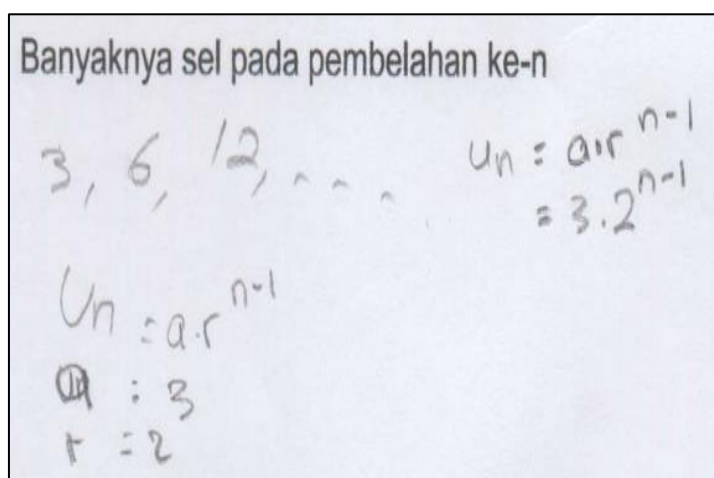 Banyaknya sel pada pembelahan ke-n
3, 6, 12, ...
Un = a.r^n-1
a = 3
r = 2
Un = a.r^n-1
= 3.2^n-1